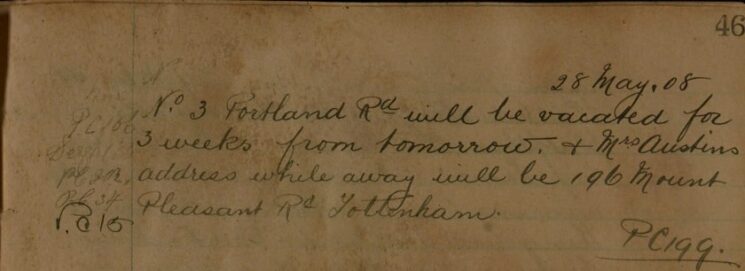 46
28 May. 08
No. 3 Portland Rd will be vacated for
3 weeks from tomorrow. & Mrs Austins
address while away will be 196 Mount
Pleasant Rd Tottenham.
P.C 15
PC199.